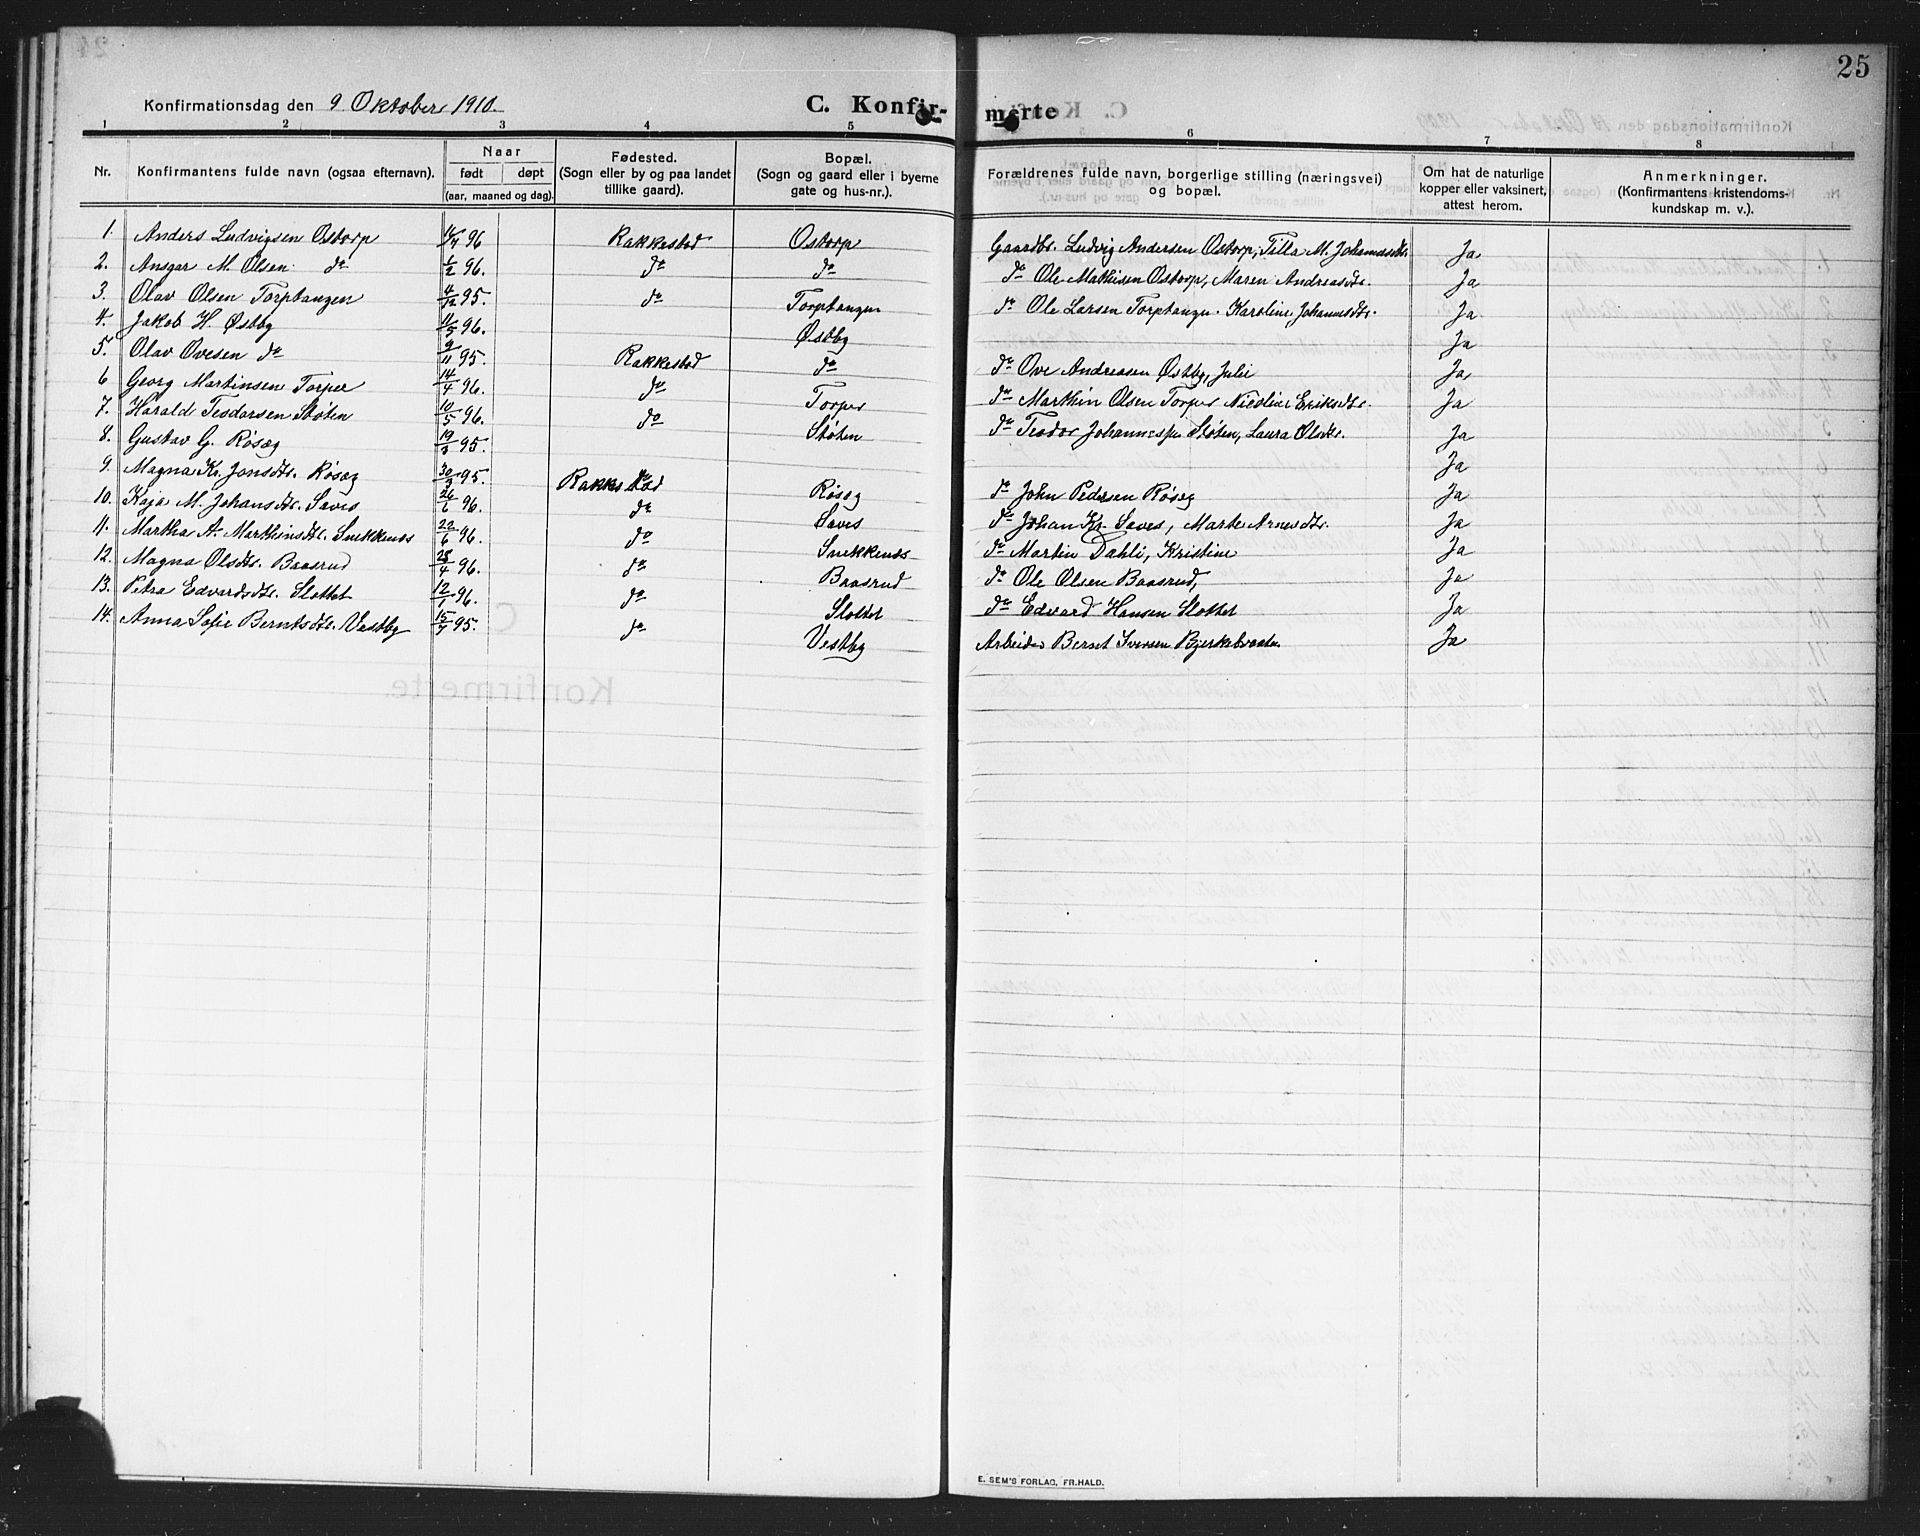 25
Konfirmationsdag den 9 Oktober 1910. C. Konfir- merte
1 2 3 4 5 6 7 8
Nr. Konfirmantens fulde navn (ogsaa efternavn). Naar født døpt (aar, maaned og dag). Fødested. (Sogn eller by og paa landet tillike gaard). Bopæl. (Sogn og gaard eller i byerne gate og hus-nr.). Forældrenes fulde navn, borgerlige stilling (næringsvei) og bopæl. Om hat de naturlige kopper eller vaksinert, attest herom. Anmerkninger. (Konfirmantens kristendoms- kundskap m. v.).
1. Anders Ludvigsen Ostorp 96 Rakkestad Ostorp Gaardbr. Ludvig Andersen Ostorp, Tilla M. Johannesdtr. Ja
2. Ansgar M. Olsen do 1/2 96. do do do Ole Mathisen Ostorp, Maren Andreasdtr. Ja
3. Olav Olsen Torptangen 4/12 95. do Torptangen do Ole Larsen Torptangen. Karoline Johannesdtr. Ja
4. Jakob H. Østby 11/5 96. Østby Ja
5. Olav Ovesen do 9/11 95. Rakkestad do do Ove Andreasen Østby, Julie Ja
6 Georg Martinsen Torper 14/4 96. do Torper do Marthin Olsen Torper Nicoline Eriksdtr. Ja
7. Harald Teodorsen Støten 10/5 96. do Støten do Teodor Johannesen Støten, Laura Olsdtr. Ja
8. Gustav G. Røsæg 19/3 95. Ja
9. Magna Kr. Jonsdtr. Røsæg 30/3 95. Rakkestad Røsæg do John Pedersen Røsæg Ja
10. Kaja M. Johansdtr. Saves 26/6 96. do Saves do Johan Kr. Saves, Marte Arnesdtr. Ja
11. Martha A. Marthinsdtr. Snekkenes 22/6 96. do Snekkenes do Martin Dahli, Kristine Ja
12. Magna Olsdtr. Baasrud 28/4 96. do Baasrud do Ole Olsen Baasrud, Ja
13. Petra Edvardsdtr. Slottet 12/1 96. do Slottet do Edvard Hansen Slottet Ja
14. Anna Sofie Berntsdtr. Vestby 15/7 95. do Vestby Arbeider Bernt Iversen Ja
E. SEM'S FORLAG, FR.HALD.